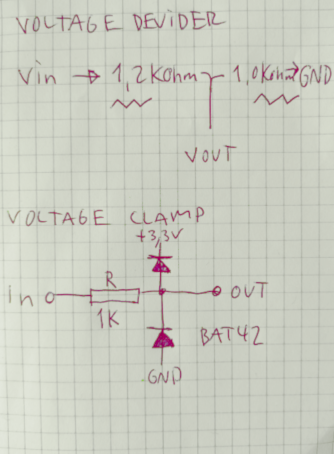 VOLTAGE DEVIDER
Vin → 1,2Kohm 1,0Kohm→GND
VOUT
VOLTAGE CLAMP
+3,3V
R
in OUT
1K
BAT42
GND